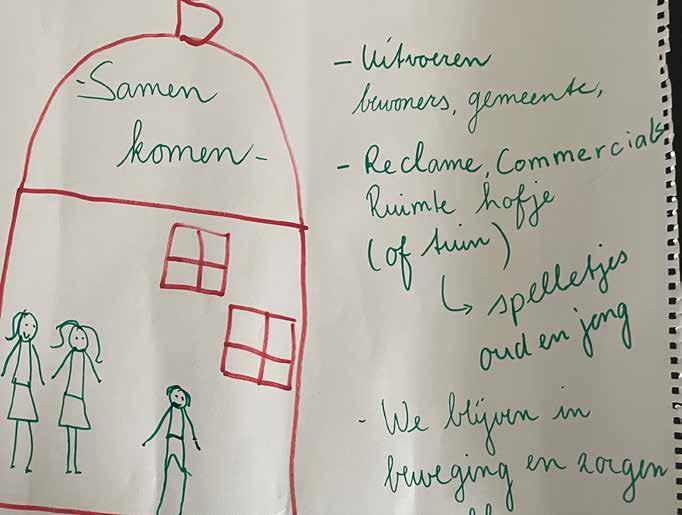 - Samen
komen -
- Uitvoeren
bewoners, gemeente,
- Reclame, Commercials
Ruimte hofje
(of tuin)
↳ spelletjes
oud en jong
- We blijven in
beweging en zorgen